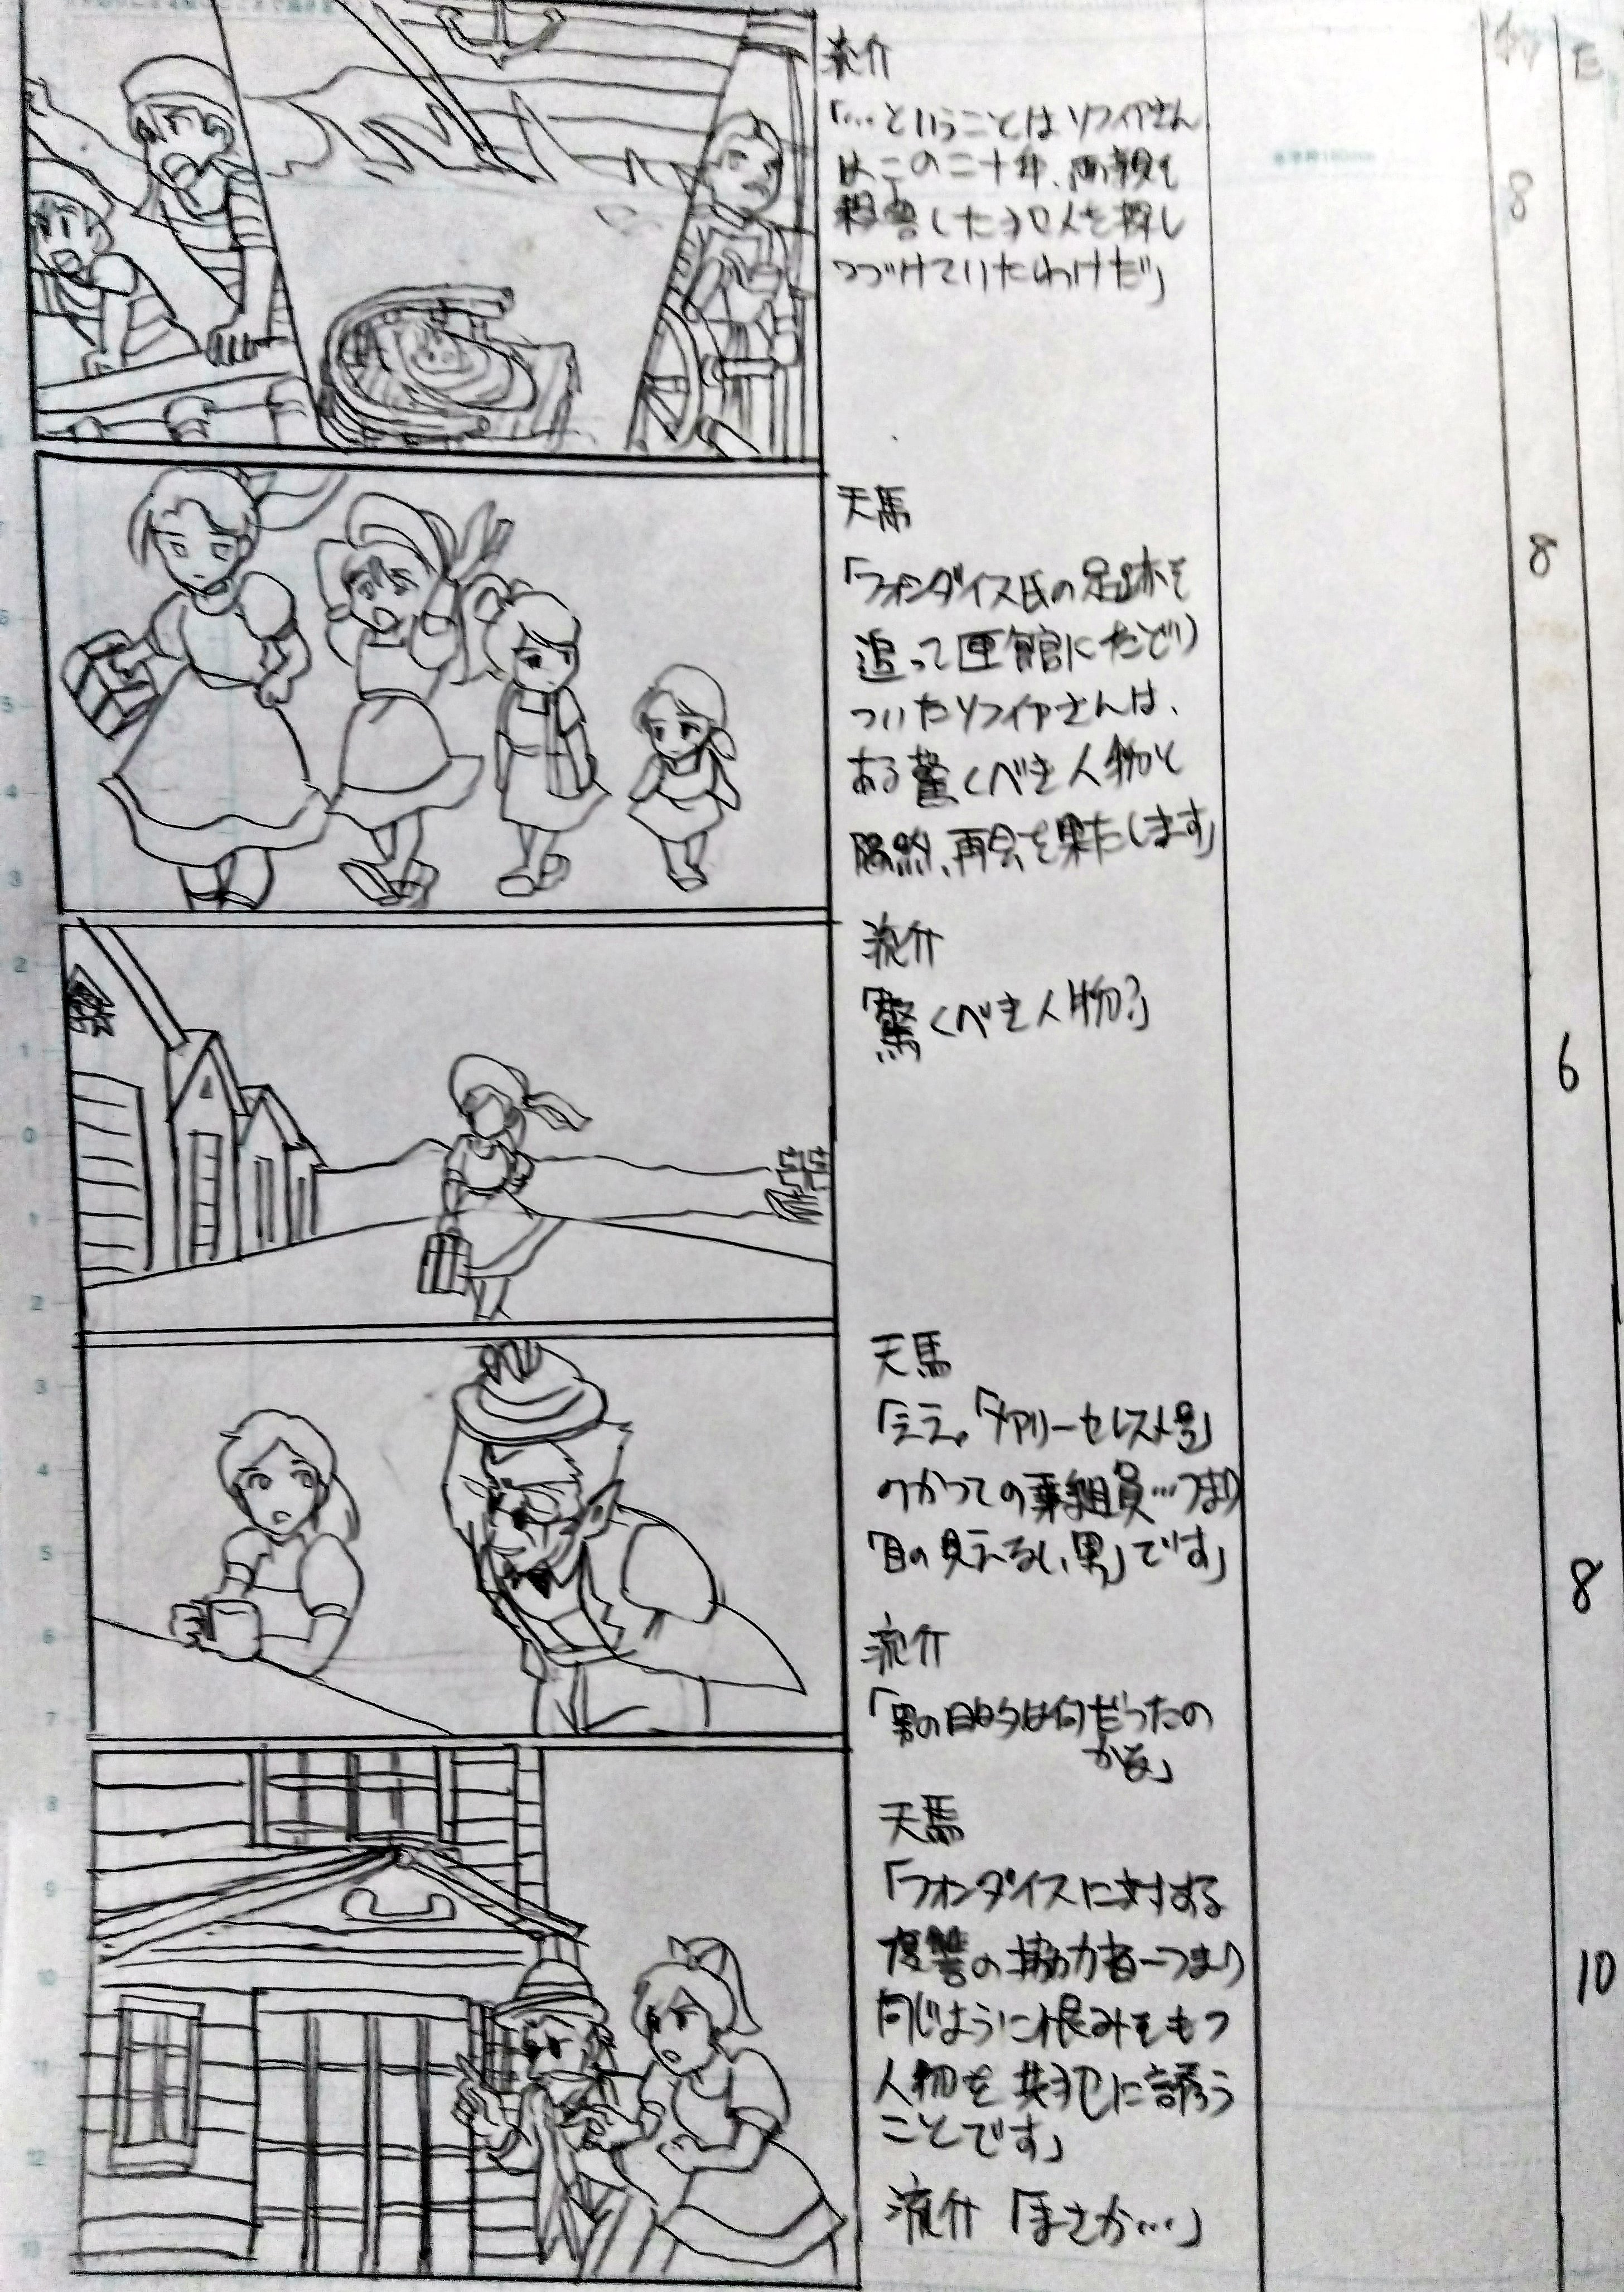 流介
「…ということはソフィアさん
はこの二十年、両親を
殺害した犯人を探し
つづけていたわけだ」
8
天馬
「フォンダイス氏の足跡を
追って匣館にたどり
ついたソフィアさんは、
ある驚くべき人物と
再会を果たします」
8
流介
「驚くべき人物?」
6
天馬
「ええ。「マリーセレスト号」
のかつての乗組員…つまり
「目の見えない男」です」
流介
「男の目的は何だったの
かな」
8
天馬
「フォンダイスに対する
復讐の協力者ーつまり
同じように恨みをもつ
人物を共犯に誘う
ことです」
流介「まさか…」
10